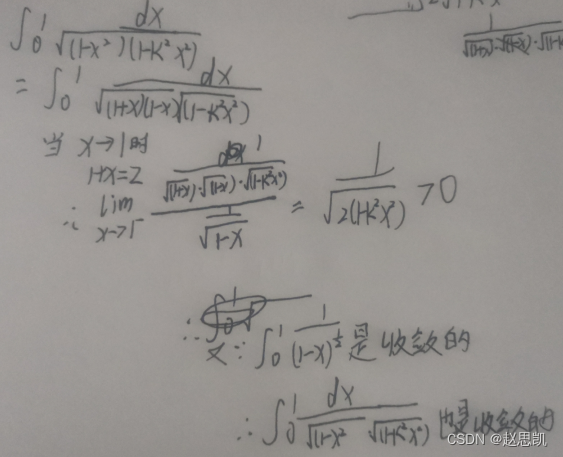 ∫₀¹ dx / √((1-x²)(1-k²x²))
= ∫₀¹ dx / (√((1+x)(1-x)) √(1-k²x²))
当 x→1时
1+x=2
∴ lim x→1⁻ (1 / (√(1+x)·√(1-x)·√(1-k²x²))) / (1/√(1-x)) = 1/√(2(1-k²x²)) >0
又∵ ∫₀¹ 1/(1-x)^½ 是收敛的
∴ ∫₀¹ dx / (√(1-x)² √(1-k²x²)) 也是收敛的
CSDN @赵思凯